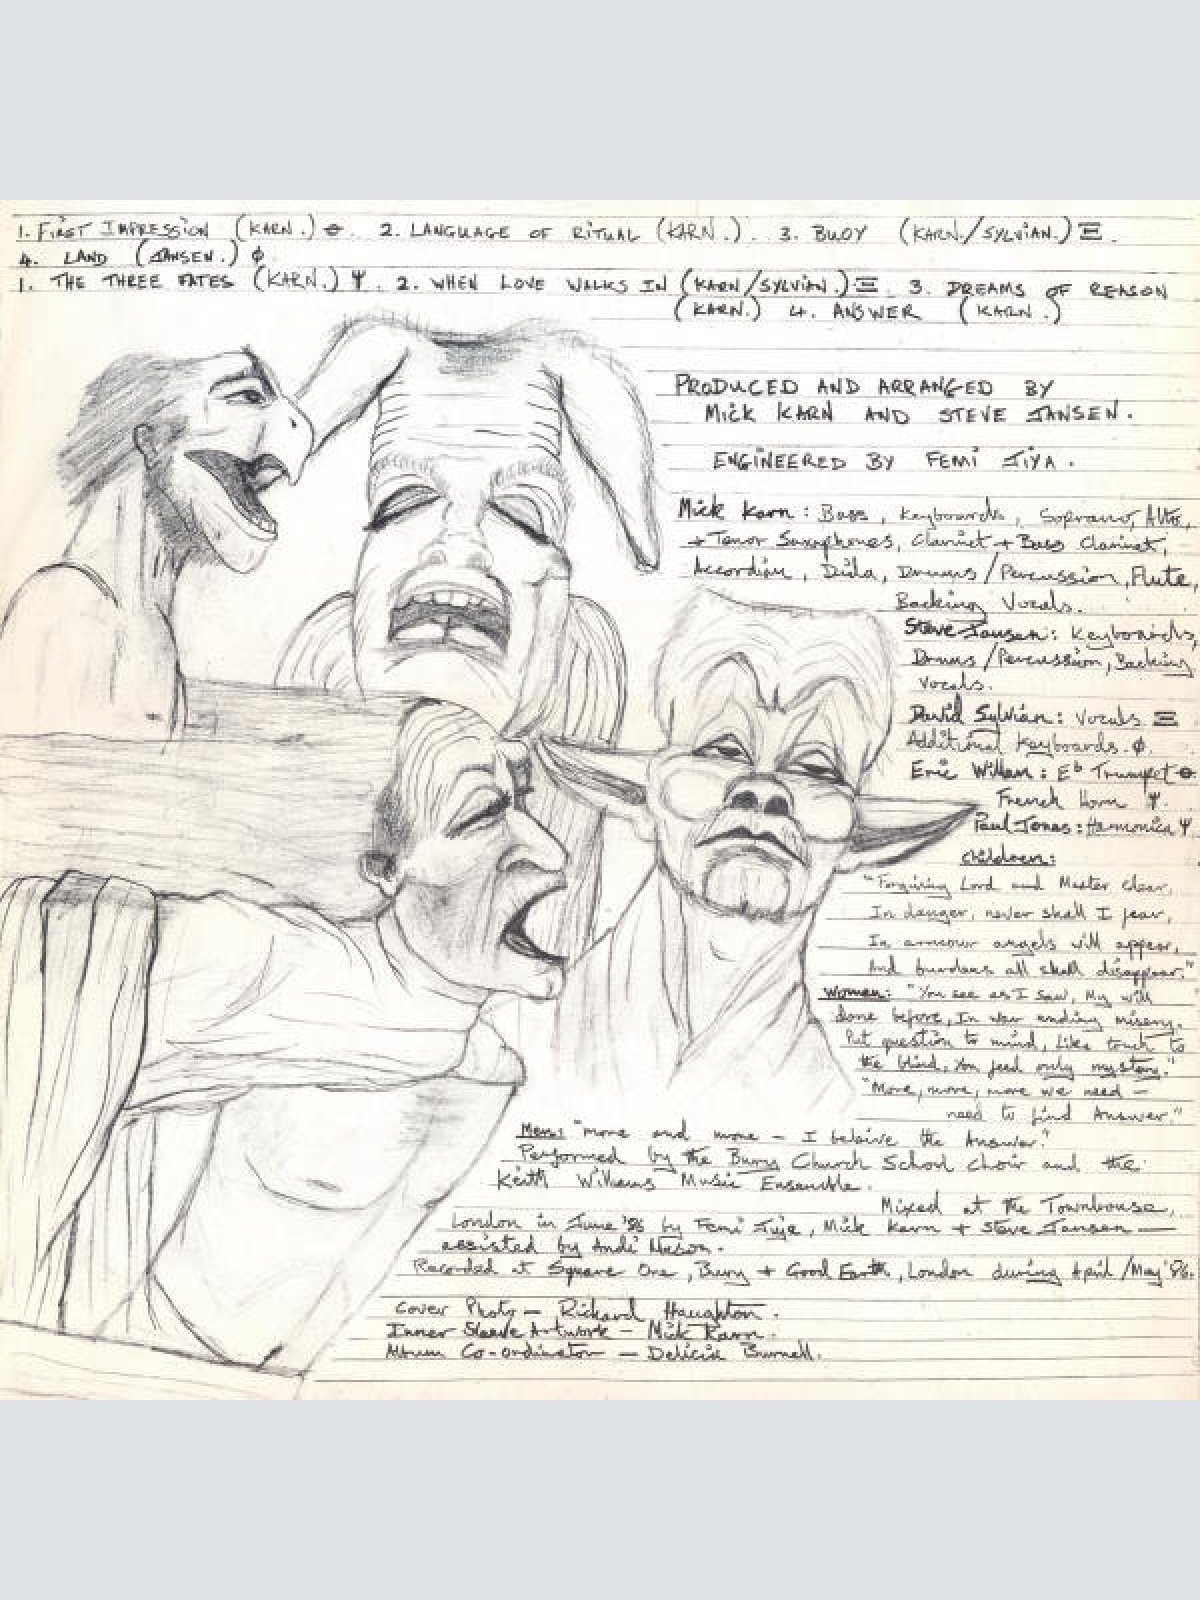 1. FIRST IMPRESSION (KARN.) ⊖. 2. LANGUAGE OF RITUAL (KARN.). 3. BUOY (KARN./SYLVIAN.) Ξ.
4. LAND (JANSEN.) ϕ
1. THE THREE FATES (KARN.) Ψ. 2. WHEN LOVE WALKS IN (KARN/SYLVIAN.) Ξ. 3. DREAMS OF REASON
(KARN.) 4. ANSWER (KARN.)
PRODUCED AND ARRANGED BY
MICK KARN AND STEVE JANSEN.
ENGINEERED BY FEMI JIYA.
Mick Karn: Bass, Keyboards, Soprano, Alto,
+ Tenor Saxophones, Clarinet + Bass Clarinet,
Accordian, Dida, Drums/Percussion, Flute,
Backing Vocals.
Steve Jansen: Keyboards,
Drums/Percussion, Backing
Vocals.
David Sylvian: Vocals Ξ
Additional Keyboards. ϕ.
Eric Willan: E♭ Trumpet ⊖
French Horn Ψ.
Paul Jones: Harmonica Ψ
Children:
"Forgiving Lord and Master clear,
In danger, never shall I fear,
In armour angels will appear,
And burdens all shall disappear."
Women: "You see as I saw, My will
done before, In war ending misery.
Put question to mind, Like touch to
the blind, You feed only mystery."
"More, more, more we need –
need to find Answer."
Men: "more and more – I beleive the Answer."
Performed by the Bury Church School Choir and the
Keith Williams Music Ensemble.
Mixed at the Townhouse,
London in June '86 by Femi Jiya, Mick Karn + Steve Jansen —
assisted by Andi Mason.
Recorded at Square One, Bury + Good Earth, London during April/May '86.
Cover Photo – Richard Haughton.
Inner Sleeve Artwork – Mick Karn.
Album Co-ordinator – Delicia Burnell.